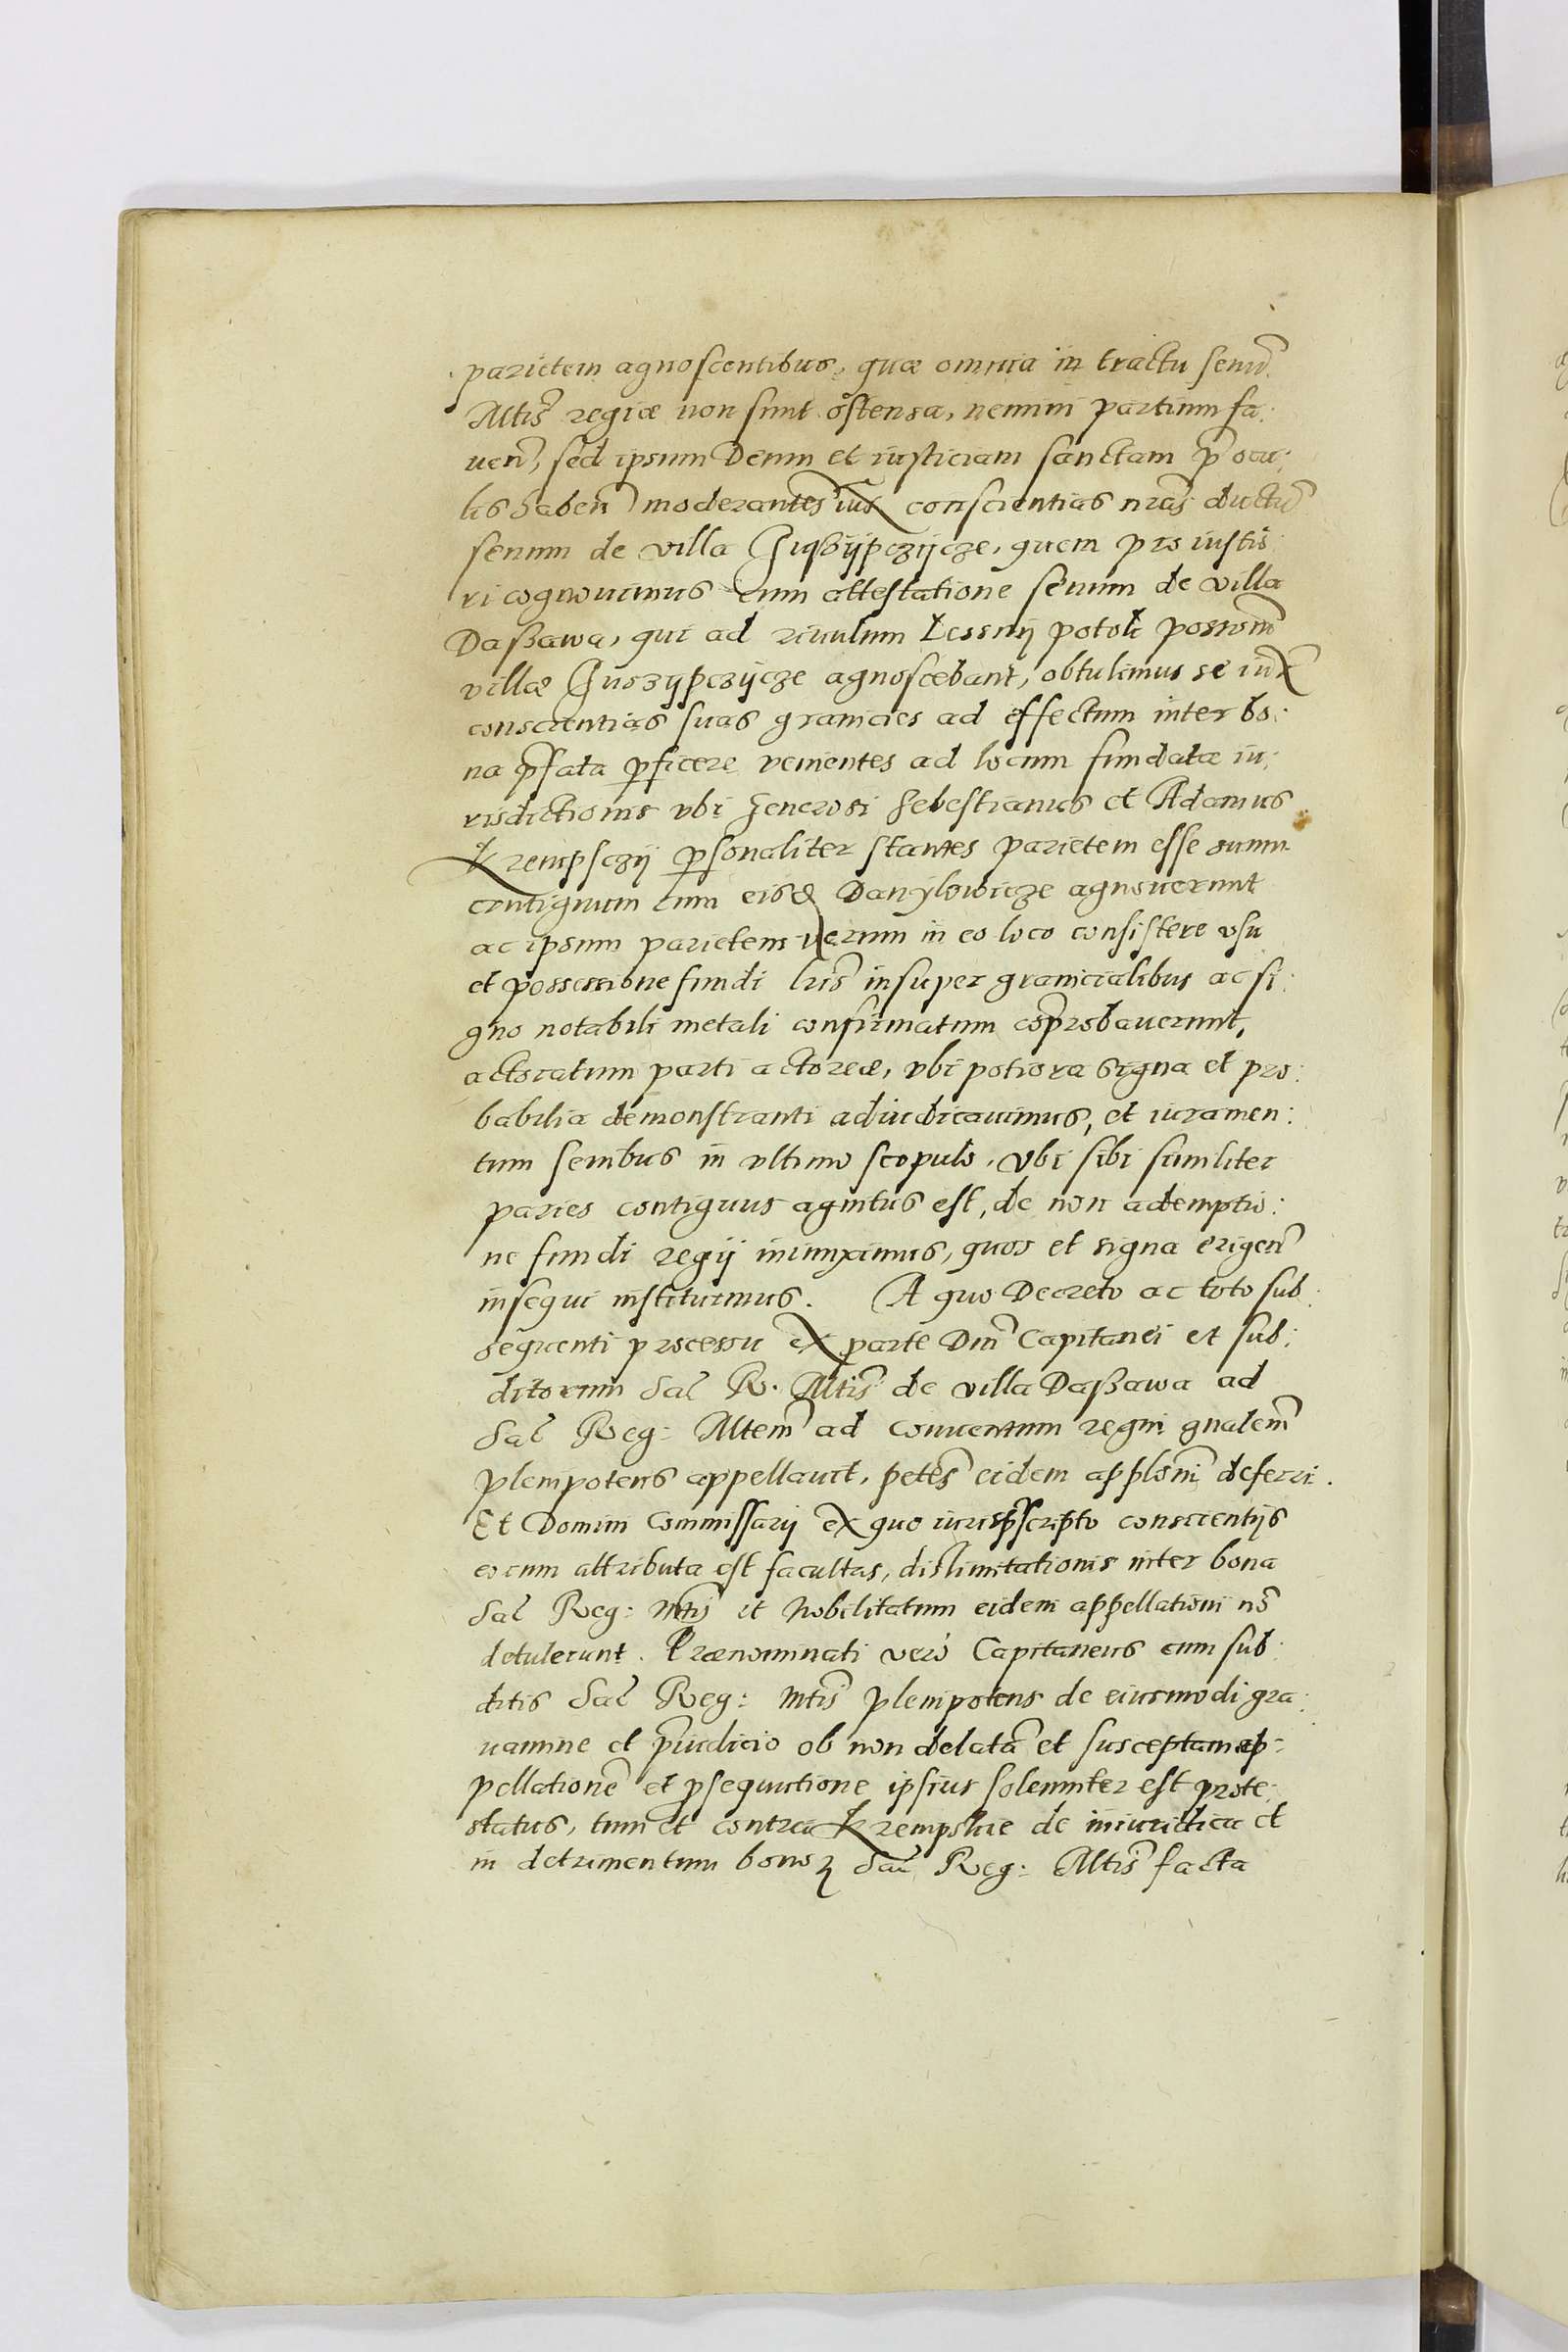 parietem agnoscentibus, quæ omnia in tractu senu͂
Mtis͂ regiæ non sunt ostensa, nemini partium fa:
uen͂, sed ipsum Deum et iusticiam sanctam p͂ ocu:
lis haben͂ moderantes iux conscientias nras͂ ductu͂
senum de villa , quem pro iustio
ri cognouimus cum attestatione senum de villa
Daßawa, qui ad riuulum Lessnij potok possom͂
villæ agnoscebant, obtulimus se iux͂
conscientias suas granicies ad effectum inter bo:
na p͂fata p͂ficere venientes ad locum fundatæ iu:
risdictionis vbi generosi Sebestianus et Adamus
Krempsczij p͂sonaliter stantes parietem esse suum
contiguum cum eisd Danÿlowicze agnouerunt
ac ipsum parietem verum in eo loco consistere vsu
et possessione fundi lris͂ insuper granicialibus ac si:
gno notabili metali confirmatum cop͂robauerunt,
actoratum parti actoreæ, vbi potiora signa et pro:
babilia demonstranti adiudicauimus, et iuramen:
tum senibus in vltimo scopulo, vbi sibi similiter
paries contiguus agnitus est, de non ademptio:
ne fundi regij iniunximus, quos et signa erigen͂
insequi instituimus. A quo Decreto ac toto sub:
sequenti processu ex parte Dni͂ Capitanei et sub:
ditorum Sac͂ R. Mtis͂ de villa Daßawa ad
Sac͂ Reg: Mtem͂ ad conuentum regni gnalem͂
plenipotens appellauit, petes͂ eidem applom͂ deferri.
Et Domini Commissarij ex quo iurisp͂scripto conscientijs
eorum attributa est facultas, dislimitationis inter bona
Sac͂ Reg: Mtis͂ et Nobilitatum eidem appellationi no͂
detulerunt. Prænominati verò Capitaneus cum sub:
ditis Sac͂ Reg: Mtis͂ plenipotens de eiusmodi gra:
uamine et p͂iudicio ob non delata͂ et susceptam ap:
pellatione͂ et p͂sequutione ipsius solenniter est prote:
status, tum et contra Krempskie de iniuridica et
in detrimentum bonoꝝ Sac͂ Reg: Mtis͂ facta